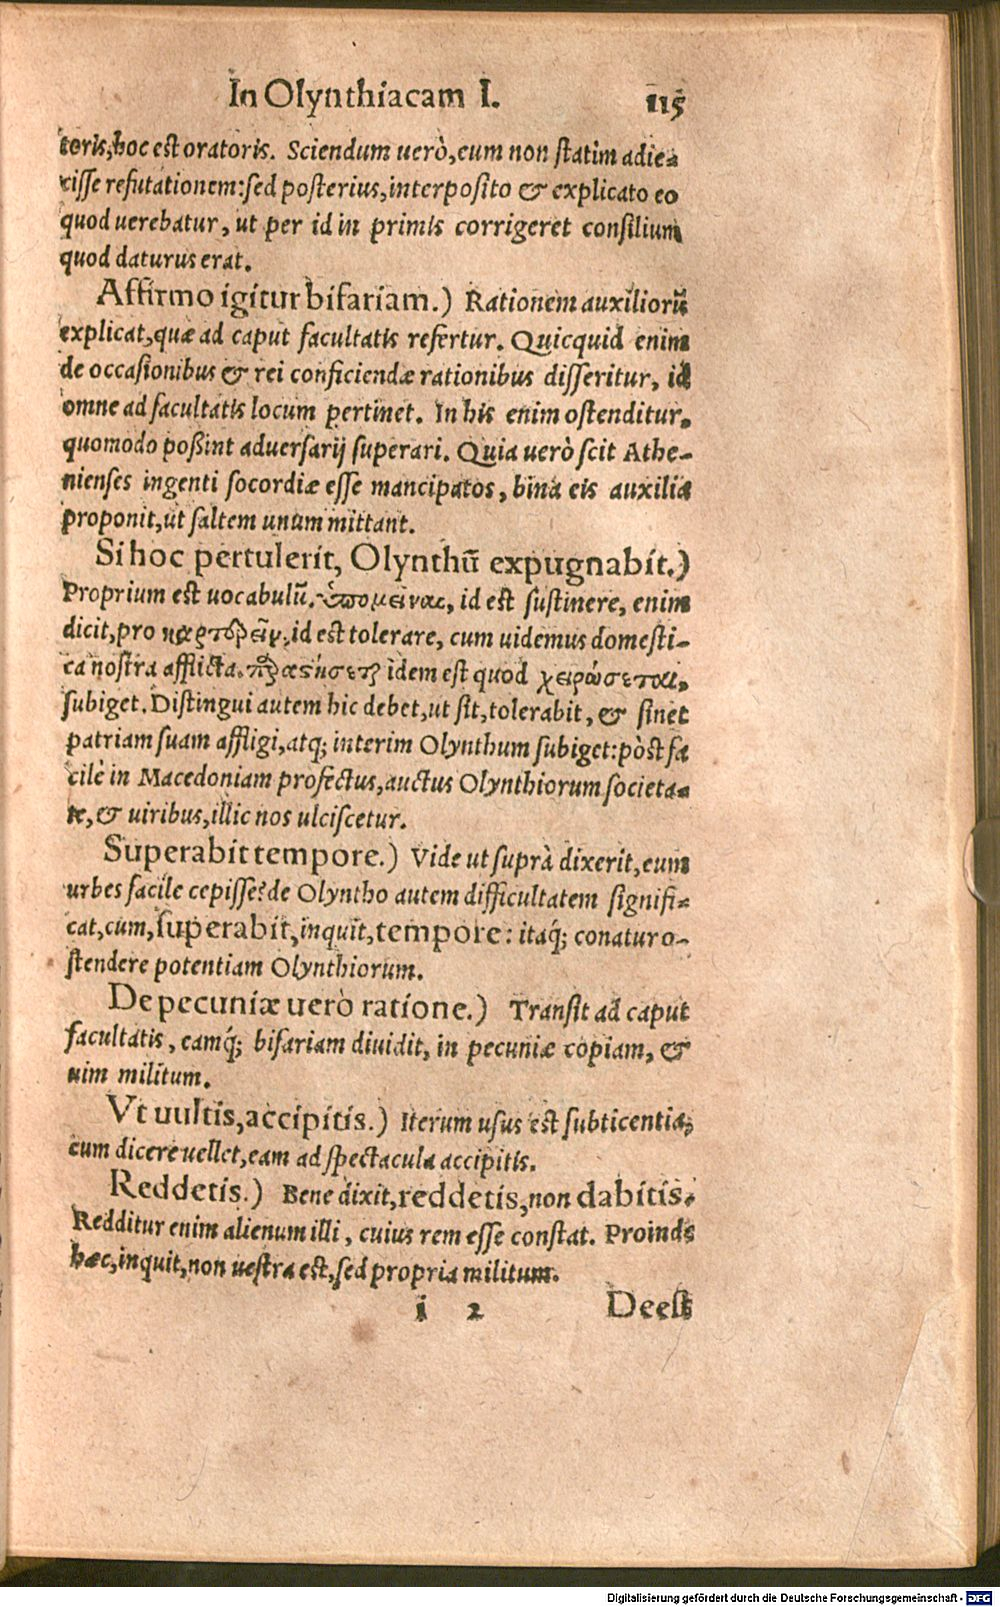 In Olynthiacam I. 115
toris, hoc est oratoris. Sciendum uerò, eum non statim adie-
cisse refutationem: sed posterius, interposito & explicato eo
quod uerebatur, ut per id in primis corrigeret consilium
quod daturus erat.
Affirmo igitur bifariam.) Rationem auxiliorũ
explicat, quæ ad caput facultatis refertur. Quicquid enim
de occasionibus & rei conficiendæ rationibus disseritur, id
omne ad facultatis locum pertinet. In his enim ostenditur,
quomodo poßint aduersarij superari. Quia uerò scit Athe-
nienses ingenti socordiæ esse mancipatos, bina eis auxilia
proponit, ut saltem unum mittant.
Si hoc pertulerit, Olynthũ expugnabit.)
Proprium est uocabulũ. ὑπομεῖναι, id est sustinere, enim
dicit, pro καρτερεῖν, id est tolerare, cum uidemus domesti-
ca nostra afflicta. idem est quod χειρώσεται,
subiget. Distingui autem hic debet, ut sit, tolerabit, & sinet
patriam suam affligi, atq; interim Olynthum subiget: pòst fa
cilè in Macedoniam profectus, auctus Olynthiorum societa-
te, & uiribus, illic nos ulciscetur.
Superabit tempore.) Vide ut suprà dixerit, eum
urbes facile cepisse? de Olyntho autem difficultatem signifi-
cat, cum, superabit, inquit, tempore: itaq́; conatur o-
stendere potentiam Olynthiorum.
De pecuniæ uerò ratione.) Transit ad caput
facultatis, eamq́; bifariam diuidit, in pecuniæ copiam, &
uim militum.
Vt uultis, accipitis.) Iterum usus est subticentia,
cum dicere uellet, eam ad spectacula accipitis.
Reddetis.) Bene dixit, reddetis, non dabitis.
Redditur enim alienum illi, cuius rem esse constat. Proinde
hæc, inquit, non uestra est, sed propria militum.
i 2 Deest
Digitalisierung gefördert durch die Deutsche Forschungsgemeinschaft - DFG